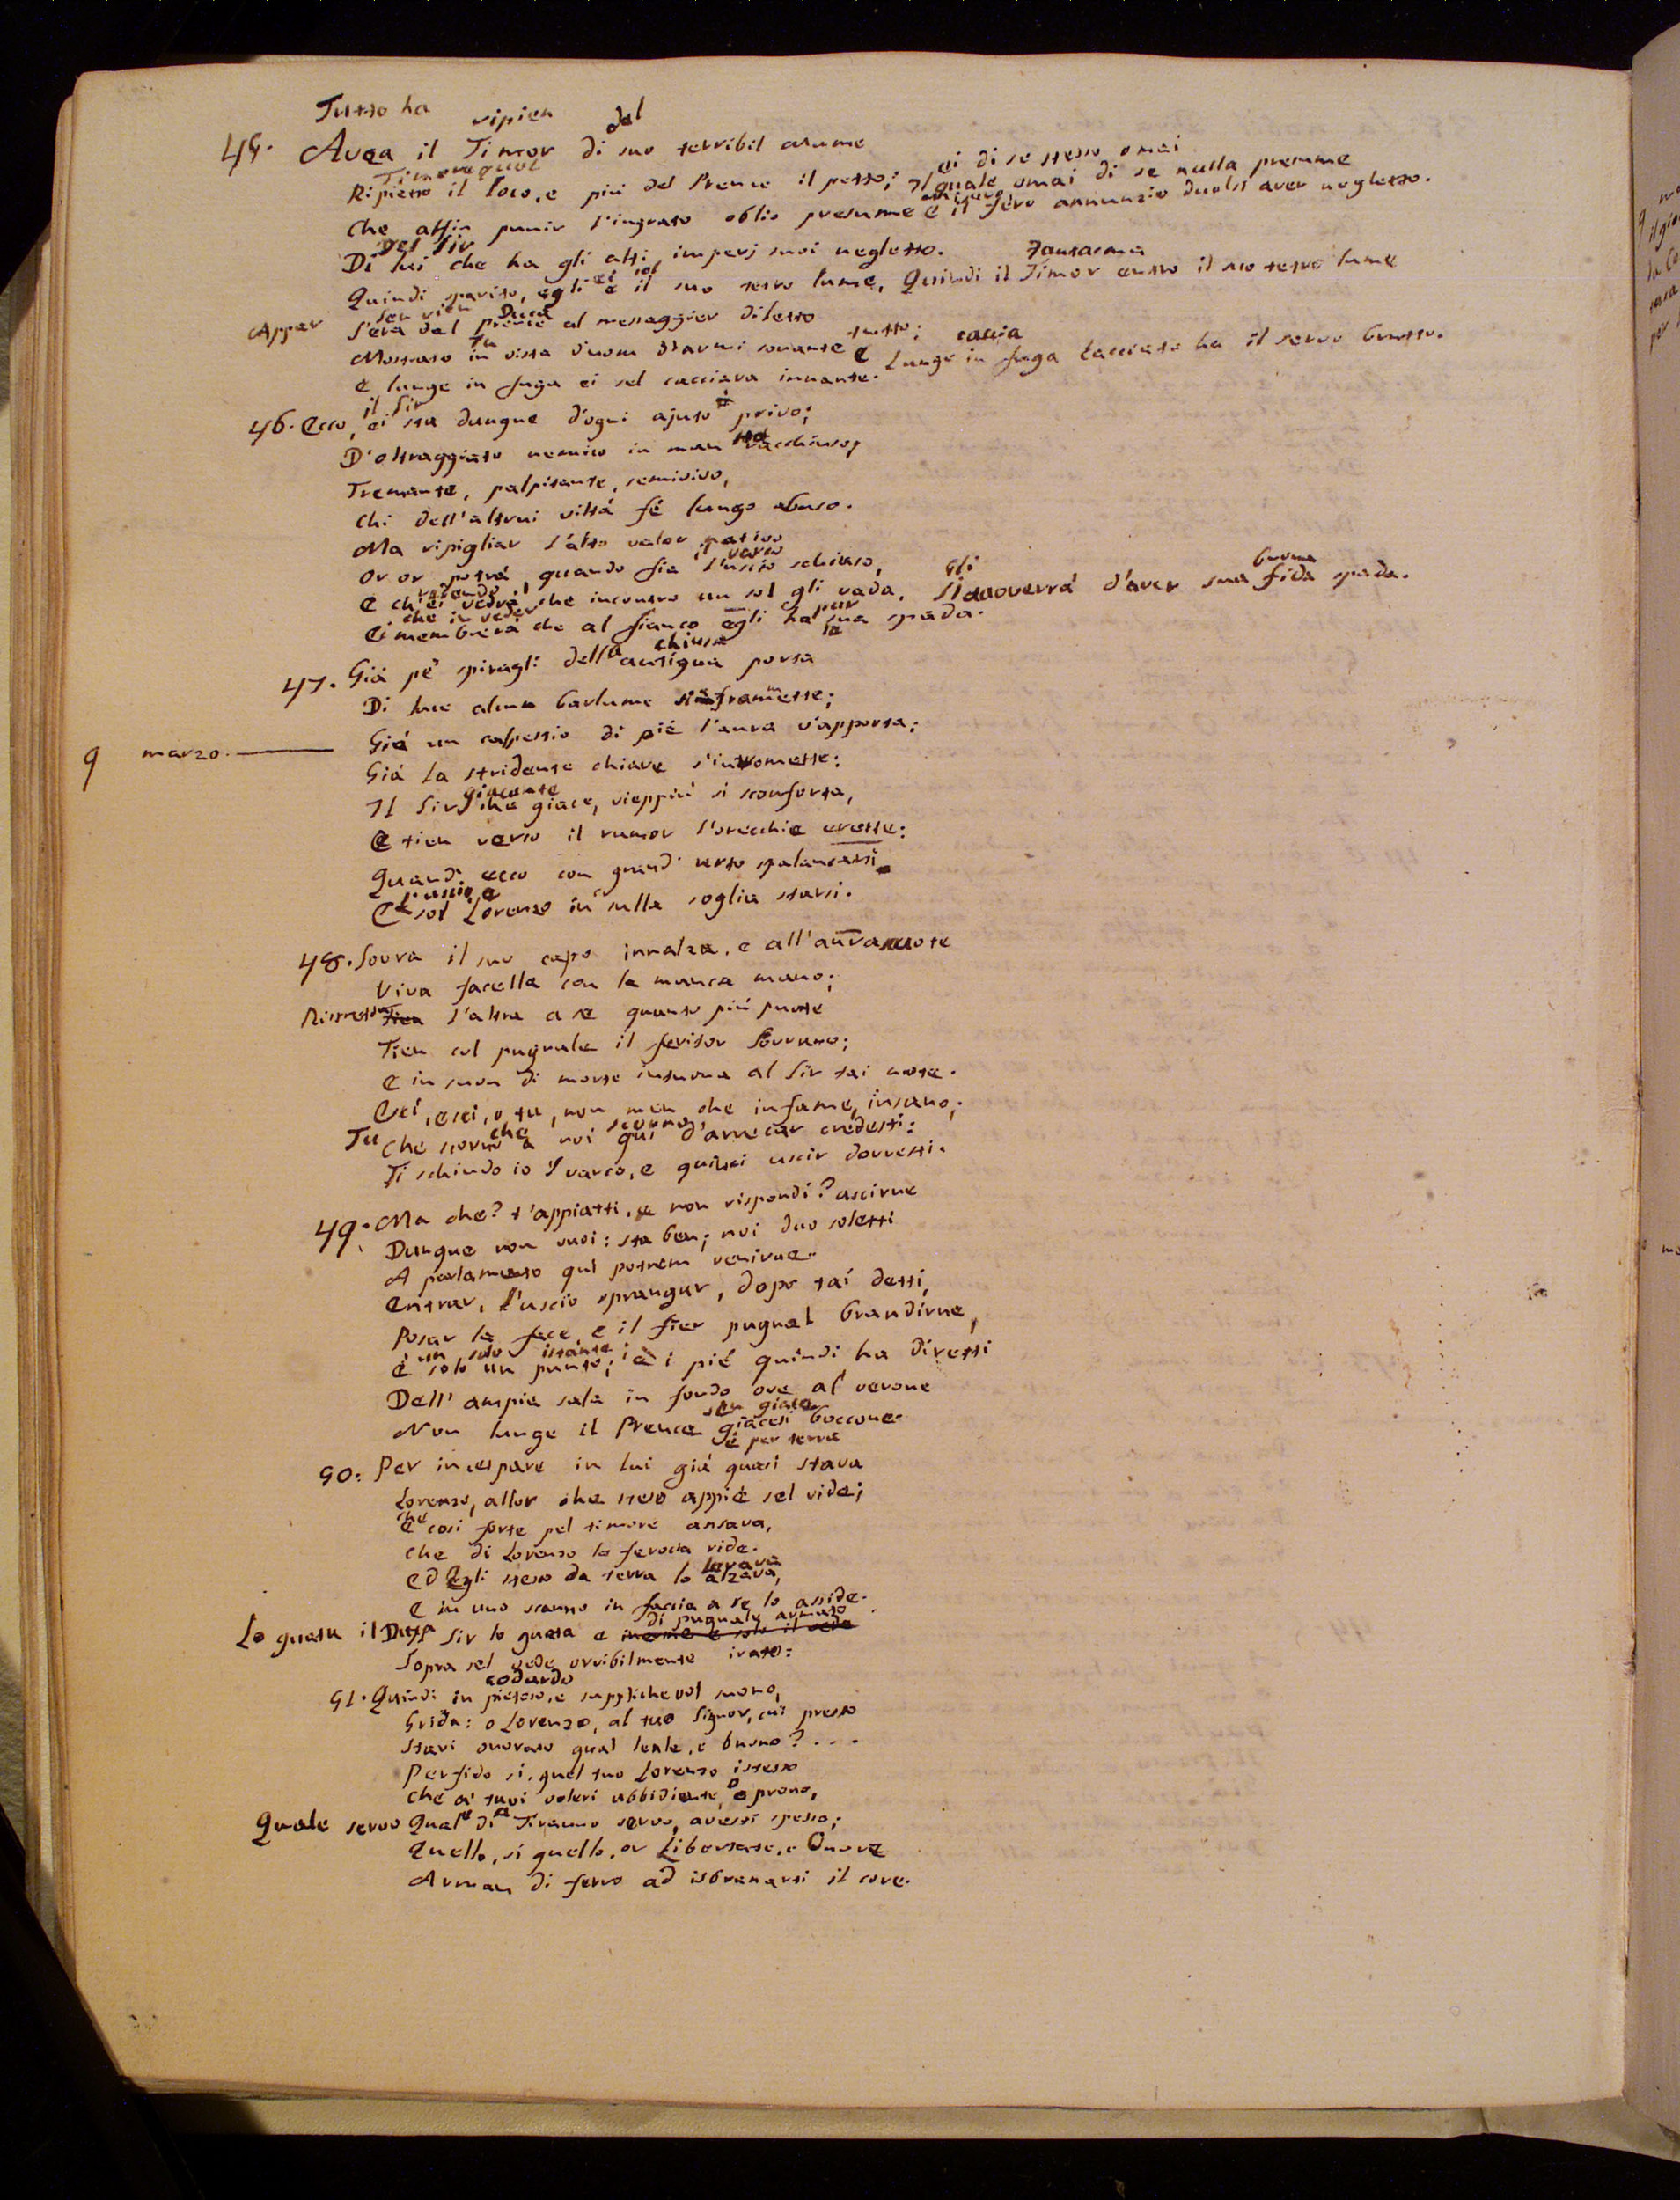 Tutto ha ripien del
45. Avea il Timor di suo terribil acume
Timor qual
ei di se stesso omai
Ripieno il loco, e più del Prence il petto; Il quale omai di se nulla presume
Che alfin punir l'ingrato oblio presume E il fero annunzio duolsi aver negletto.
Del Sir
Di lui che ha gli alti imperj suoi negletto. Fantasma
Quindi sparito, egli è il suo tetro lume, Quindi il Timor entro il suo tetro lume
Appar sen vien Duca
S'era dal prence al messaggier diletto
fu tutto; caccia
Mostrato in vista d'uom d'armi sonante E lunge in fuga cacciato ha il servo brutto.
E lunge in fuga ei sel cacciava innante.
il Sir
46. Ecco, ei sta dunque d'ogni ajuto privo;
D'oltraggiato nemico in man racchiuso,
Tremante, palpitante, semivivo,
Chi dell'altrui viltà fè lungo abuso.
Ma ripigliar l'alto valor nativo
il varco
Or or potrà, quando fia l'uscio schiuso,
vedendo Gli buona
E ch'ei vedrà che incontro un sol gli vada. Sidovverrà d'aver sua fida spada.
che in veder pur
Ei membrerà che al fianco egli ha sua spada.
chiusa
47. Già pe' spiragli dell'antigua porta
Di luce alcun barlume si frammette;
Già un calpestio di piè l'aura v'apporta;
9 marzo.
Già la stridente chiave s'intromette:
giacente
Il Sir che giace, vieppiù si sconforta,
E tien verso il rumor l'orecchie erette:
Quand' ecco con grand' urto spalancarsi
l'uscio, e
E sol Lorenzo in sulla soglia starsi.
48. Sovra il suo capo innalza, e all'aura scuote
Viva facella con la manca mano;
Ristretta Tien l'altra a se quanto più puote
Tien col pugnale il feritor sovrano;
E in suon di morte insuona al Sir tai note.
Esci, esci, o tu, non men che infame, insano;
Tu che scorno,
Che scorno a noi qui d'arrecar credesti:
Ti schiudo io 'l varco, e quinci uscir dovresti.
49. Ma che? t'appiatti, e non rispondi? uscirne
Dunque non vuoi: sta ben; noi duo soletti
A parlamento qui potrem venirne.
Entrar, l'uscio sprangar, dopo tai detti,
Posar la face, e il fier pugnal brandirne,
un solo istante;
È solo un punto; e i piè quindi ha diretti
Dell' ampia sala in fondo ove al verone
sen giace
Non lunge il Prence giacesi boccone.
è per terra
50. Per incespare in lui già quasi stava
Lorenzo, allor che steso appiè sel vide;
che
E così forte pel timore ansava,
Che di Lorenzo la ferocia ride.
levava
Ed Egli steso da terra lo alzava,
E in uno scanno in faccia a se lo asside.
di pugnale armato
Lo guata il Duca Sir lo guata e inerme e solo il vede
Sopra sel vede orribilmente irato:
codardo
51. Quindi in pietoso, e supplichevol suono,
Grida: o Lorenzo, al tuo Signor, cui presso
Stavi onorato qual leale, e buono? . . .
Perfido si, quel tuo Lorenzo istesso
Che a' tuoi voleri ubbidiente, o prono,
Quale servo Qual di Tiranno servo, avesti spesso;
Quello, sì quello, or Libertate, e Onore
Arman di ferro ad isbranarti il core.